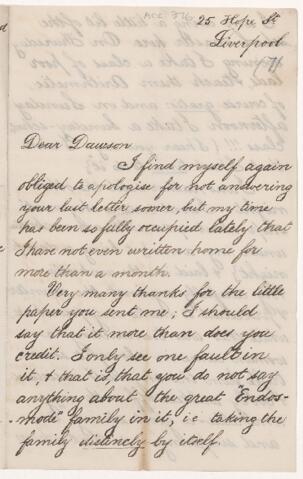 25 Hope St
Liverpool
Dear Dawson
I find myself again
obliged to apologise for not answering
your last letter sooner, but my time
has been so fully occupied lately that
I have not even written home for
more than a month.
Very many thanks for the little
paper you sent me; I should
say that it more than does you
credit. I only see one fault in
it, & that is, that you do not say
anything about the great "Endos-
mode" family in it, i.e. taking the
family distinctly by itself.